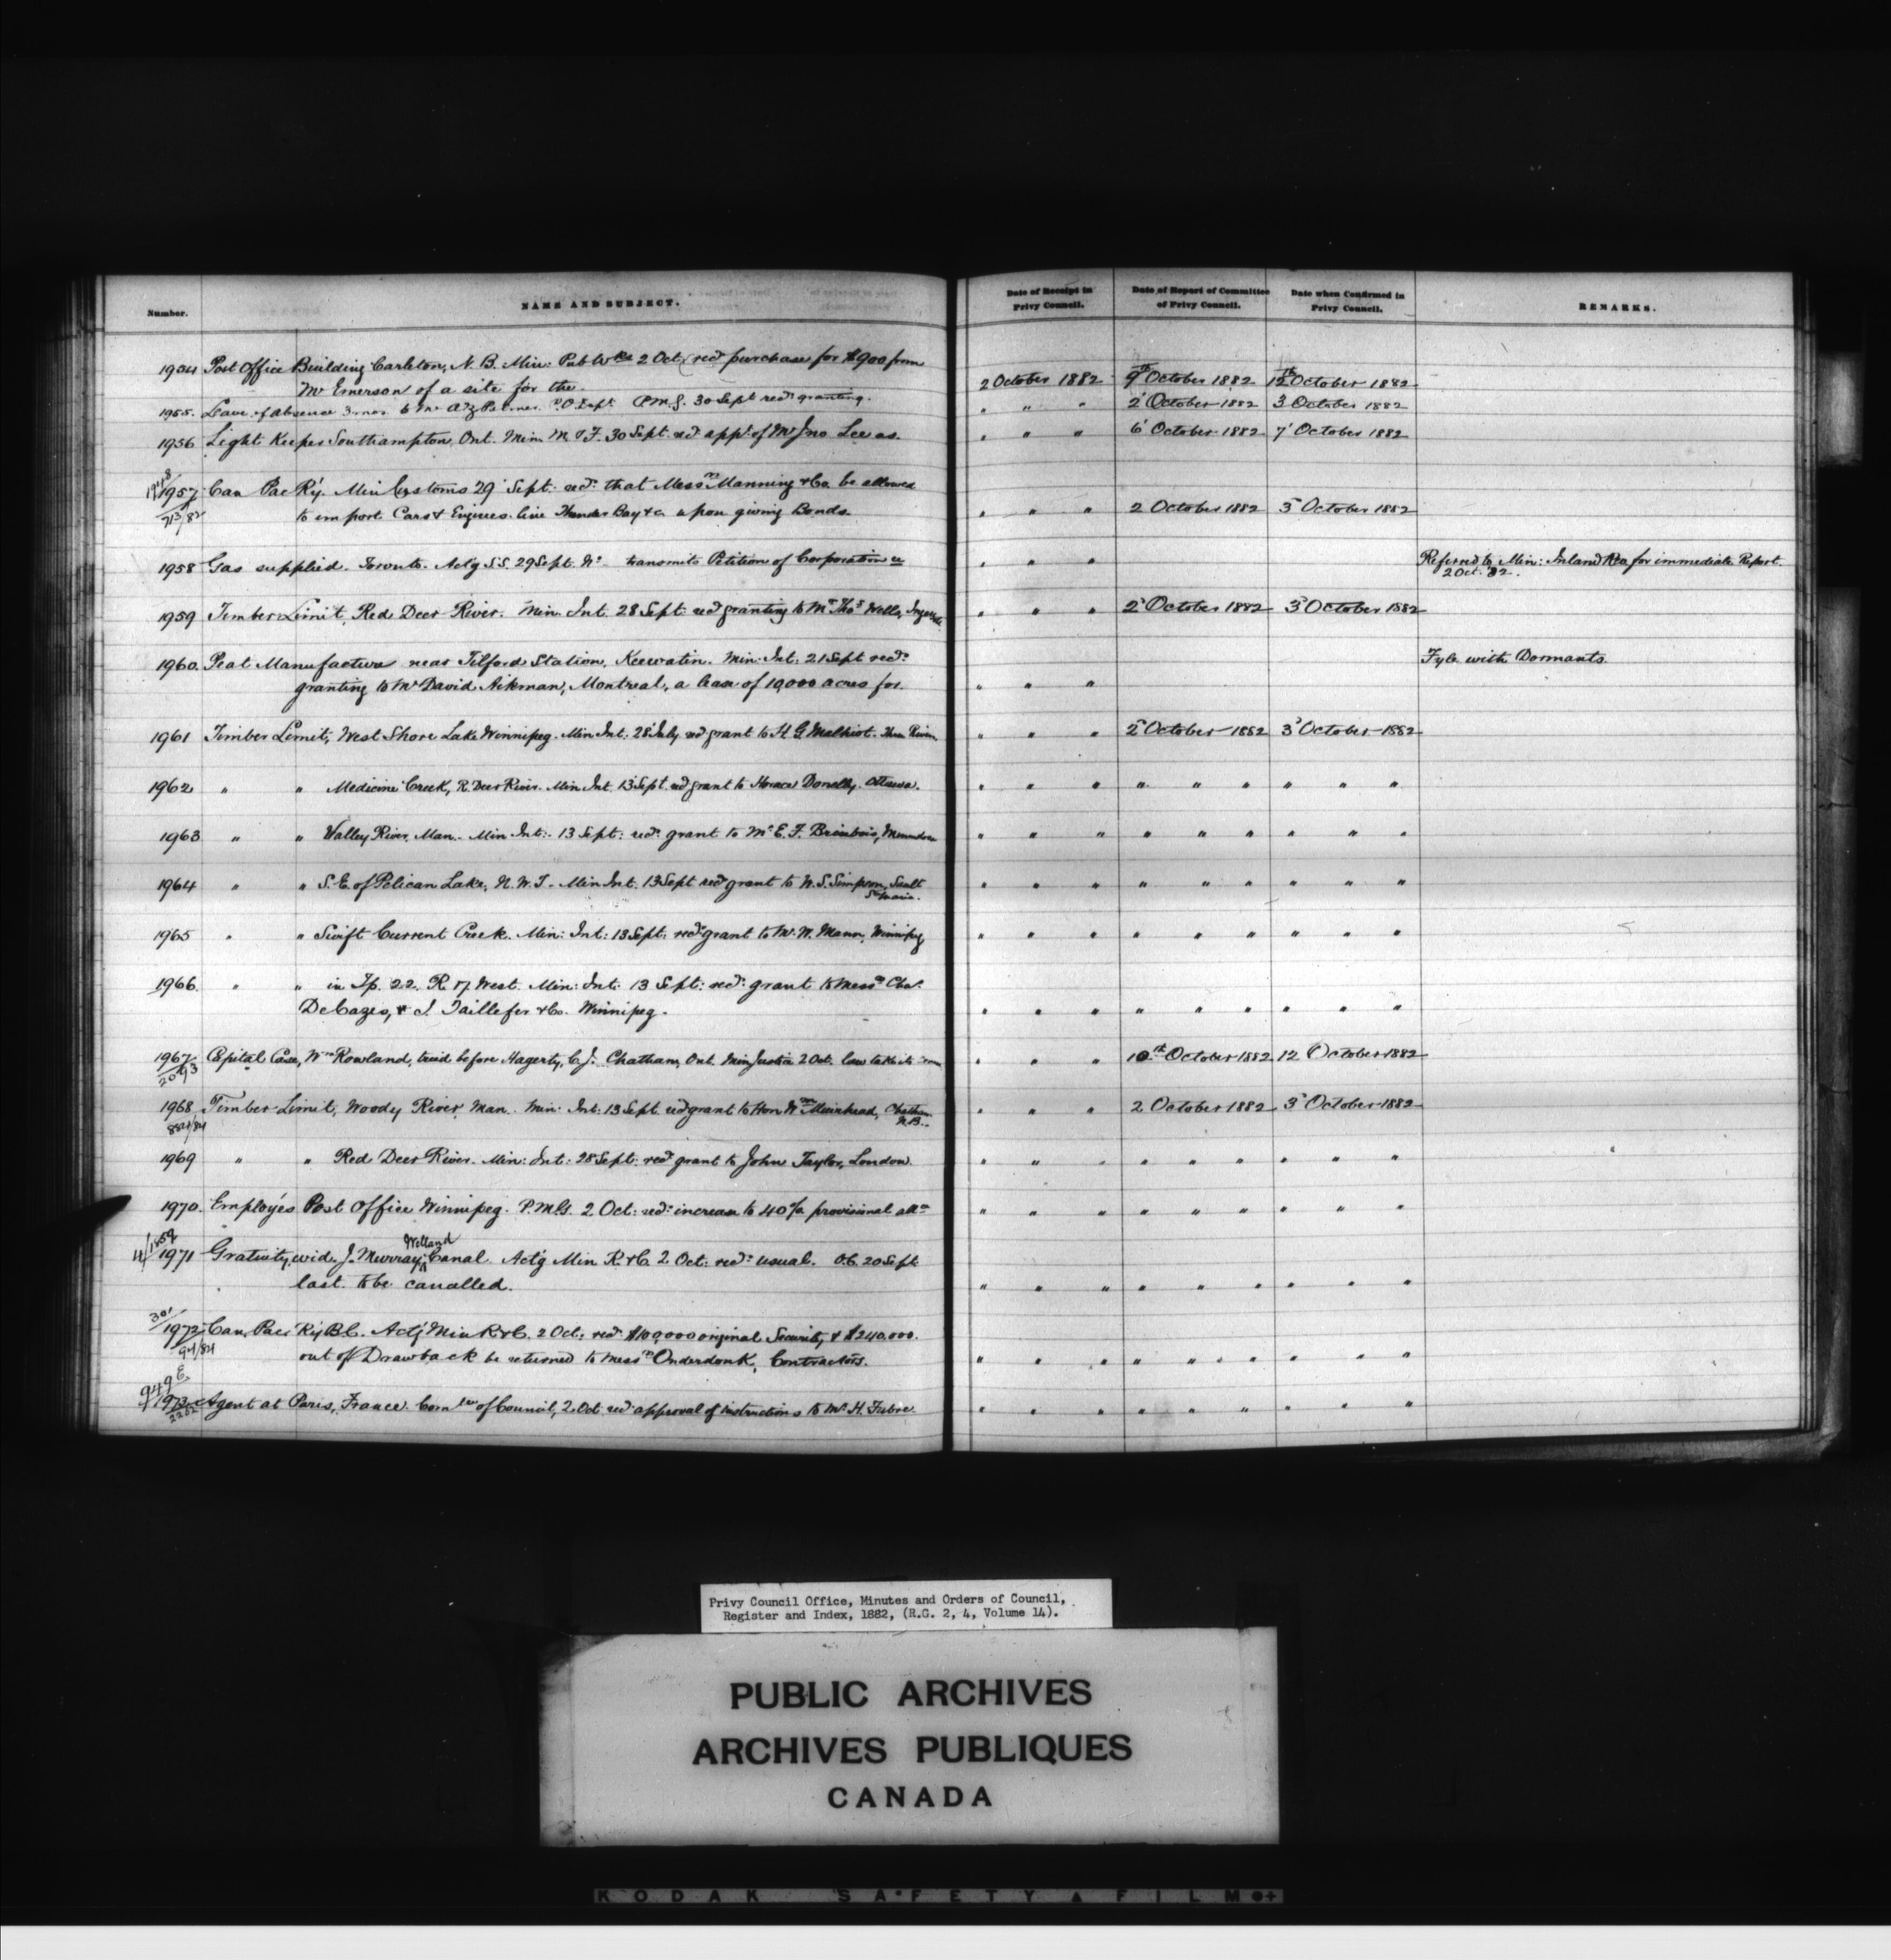 Number. NAME AND SUBJECT. Date of Receipt in Privy Council. Date of Report of Committee of Privy Council. Date when Confirmed in Privy Council. REMARKS.
1954 Post Office Building Carleton, N. B. Min: Pub Wks 2 Oct, recd purchase for $900 from
Mr Emerson of a site for the. 2 October 1882 9th October 1882 12th October 1882
1955. Leave of Absence 3 mos to Mr Palmer P.O. Dept. P.M.G. 30 Sept recd granting. " " " 2 October 1882 3 October 1882
1956 Light Keeper Southampton, Ont. Min. M & F. 30 Sept. recd appt of Mr Jno Lee as. " " " 6 October 1882 7 October 1882
1957 Can Pac Ry. Min Customs 29 Sept: recd that Messrs Manning & Co. be allowed
713/82 to import Cars & Engines line Thunder Bay &c upon giving Bonds. " " " 2 October 1882 3 October 1882
1958 Gas supplied. Toronto. Actg S.S. 29 Sept. transmits Petition of Corporation re " " " Referred to Min: Inland Rev for immediate Report.
2 Oct. 82.
1959 Timber Limit, Red Deer River. Min. Int 28 Sept recd granting to Mr Thos Wells, Ingersoll. " " " 2 October 1882 3 October 1882
1960. Peat Manufacture near Tilford Station, Keewatin. Min: Int: 21 Sept recd Fyle with Dormants.
granting to Mr David Aikman, Montreal, a lease of 10,000 acres for. " " "
1961 Timber Limit, West Shore Lake Winnipeg. Min Int: 28 July recd grant to H G Malhiot. Three Rivers " " " 2 October 1882 3 October 1882
1962 " " Medicine Creek, R. Deer River. Min Int 13 Sept. recd grant to Horace Donelly. Ottawa. " " " " " " " " "
1963 " " Valley River, Man. Min Int: 13 Sept: recd grant to Mr E. F. " " " " " " " " "
1964 " " S. E. of Pelican Lake, N. W. T. Min Int. 13 Sept recd grant to W. S. Simpson, Sault
Ste Marie. " " " " " " " " "
1965 " " Swift Current Creek. Min: Int: 13 Sept: recd grant to Mr W. Mann, Winnipeg " " " " " " " " "
1966. " " in Tp. 22 R 17 West. Min: Int: 13 Sept: recd grant to Messrs Chas.
DeCazes, & J. Taillefer & Co. Winnipeg. " " " " " " " " "
1967 Capital Case, Wm Rowland, tried before Hagerty, C. J. Chatham, Ont. Min Justice 2 Oct. law take its " " " 10th October 1882 12 October 1882
1968 Timber Limit, Woody River, Man. Min: Int: 13 Sept recd grant to Hon Wm Muirhead, Chatham
884/84 N.B. " " " 2 October 1882 3 October 1882
1969 " " Red Deer River. Min: Int: 28 Sept: recd grant to John Taylor, London. " " " " " " " " "
1970. Employés Post Office Winnipeg. P.M.G. 2 Oct: recd increase to 40% provisional allce " " " " " " " " "
Welland
1971 Gratuity, wid. J. Murray, Canal. Actg Min R. & C. 2 Oct: recd usual. O.C. 20 Sept:
last to be cancelled. " " " " " " " " "
301
1972 Can. Pac: Ry B.C. Actg Min R & C. 2 Oct: recd $100,000 original Security, & $240,000.
94/84 out of Drawback be returned to Messrs Onderdonk, Contractors. " " " " " " " " "
949 E
1973 Agent at Paris, France. Comtee of Council, 2 Oct recd approval of instructions to Mr H. Fabre " " " " " " " " "
Privy Council Office, Minutes and Orders of Council,
Register and Index, 1882, (R.G. 2, 4, Volume 14).
PUBLIC ARCHIVES
ARCHIVES PUBLIQUES
CANADA
KODAK SAFETY FILM